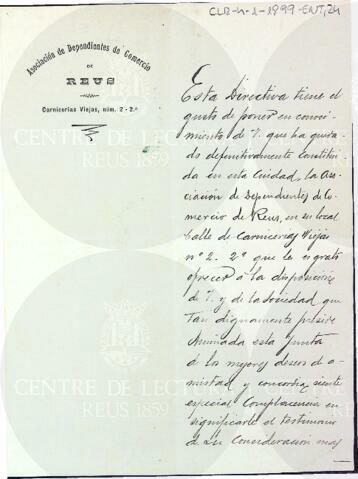 CLR-4-1-1899-ENT,24
Asociación de Dependientes de Comercio
DE
REUS
Carnicerías Viejas, núm. 2-2.º
Esta Directiva tiene el
gusto de poner en conoci-
miento de V. que ha queda-
do definitivamente Constitui-
da en esta Ciudad, la Aso-
ciación de Dependientes de Co-
mercio de Reus, en su local
Calle de Carnicerías Viejas
nº 2. 2º que le es grato
ofrecer á la disposición
de V. y de la Sociedad que
tan dignamente preside
Animada esta Junta
de los mejores deseos de a-
mistad y concordia, siente
especial Complacencia en
significarle el testimonio
de su Consideración mas
CENTRE DE LECTURA
REUS 1859
CENTRE DE LECTURA
REUS 1859